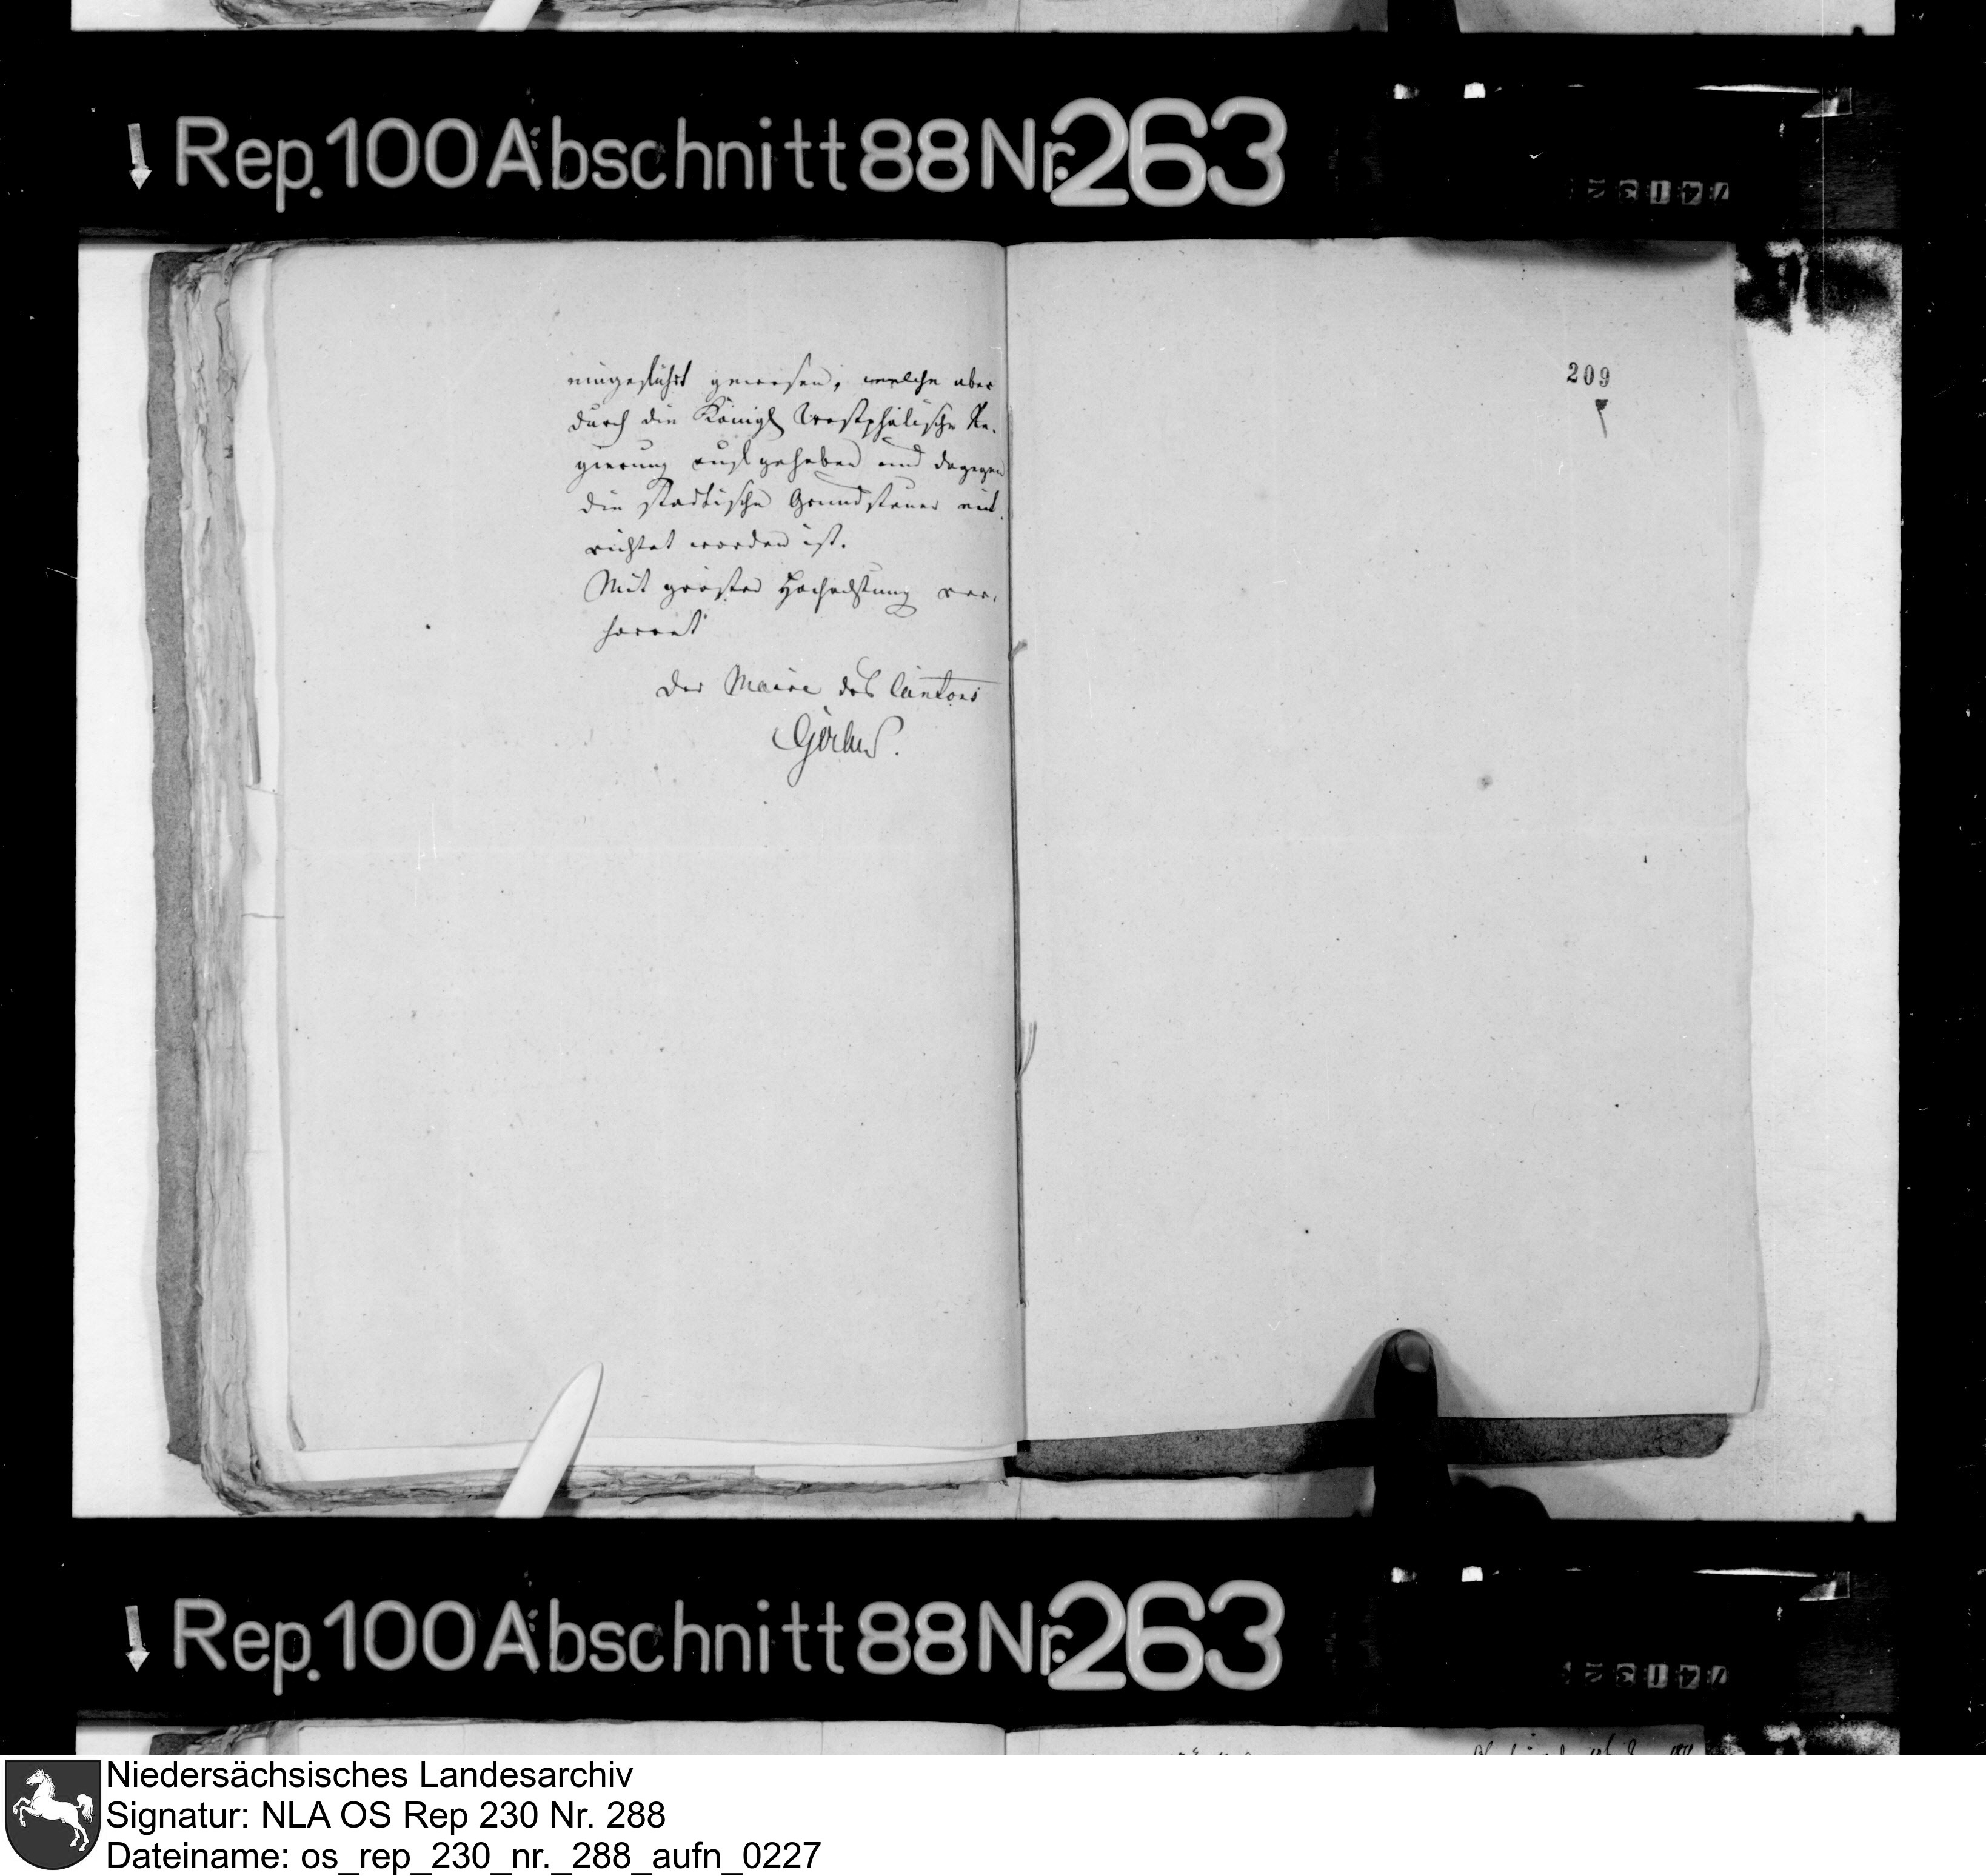 Rep. 100 Abschnitt 88 Nr. 263
eingeführt gewesen, welche aber
durch die Königl Westphälische Re-
gierung aufgehoben und dagegen
die städtische Grundsteuer ent-
richtet worden ist.
Mit größter Hochachtung ver-
harret
Der Maire des Cantons
209
Rep. 100 Abschnitt 88 Nr. 263
Niedersächsisches Landesarchiv
Signatur: NLA OS Rep 230 Nr. 288
Dateiname: os_rep_230_nr._288_aufn_0227